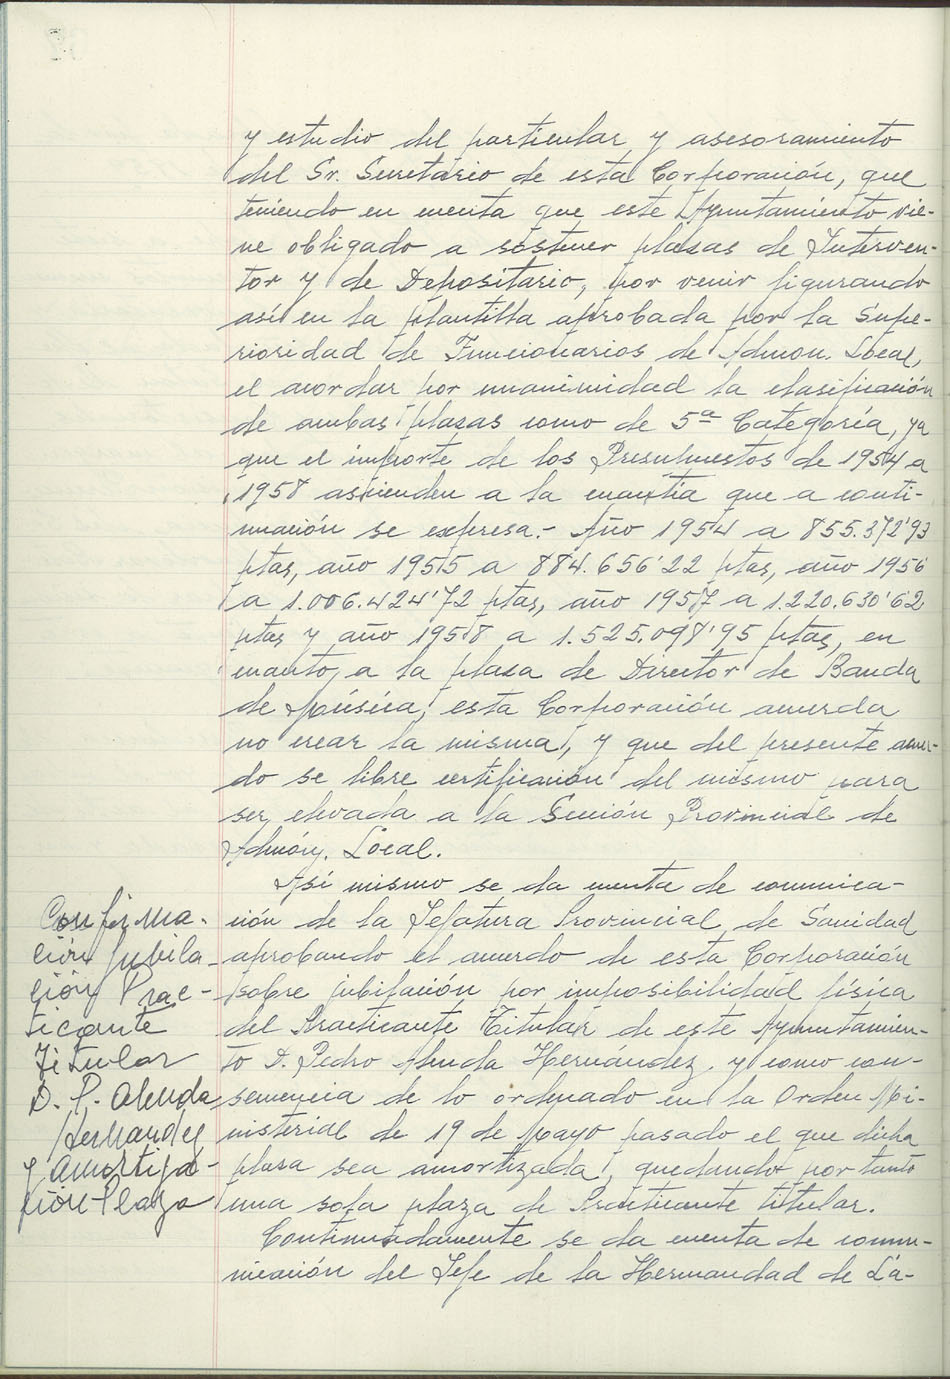 y estudio del particular y asesoramiento
del Sr. Secretario de esta Corporación, que
teniendo en cuenta que este Ayuntamiento vie-
ne obligado a sostener plazas de Interven-
tor y de Depositario, por venir figurando
así en la plantilla aprobada por la Supe-
rioridad de Funcionarios de Admon. Local,
el acordar por unanimidad la clasificación
de ambas plazas como de 5ª Categoría, ya
que el importe de los Presupuestos de 1954 a
1958 ascienden a la cuantía que a conti-
nuación se expresa.- Año 1954 a 855.372'93
ptas, año 1955 a 884.656'22 ptas, año 1956
a 1.006.424'72 ptas, año 1957 a 1.220.630'62
ptas y año 1958 a 1.525.098'95 ptas, en
cuanto a la plaza de Director de Banda
de Música, esta Corporación acuerda
no crear la misma, y que del presente acuer-
do se libre certificación del mismo para
ser elevada a la Sección Provincial de
Admón. Local.
Así mismo se da cuenta de comunica-
ción de la Jefatura Provincial de Sanidad
aprobando el acuerdo de esta Corporación
sobre jubilación por imposibilidad física
del Practicante Titular de este Ayuntamien-
to D. Pedro Alenda Hernández, y como con-
secuencia de lo ordenado en la Orden Mi-
nisterial de 19 de Mayo pasado el que dicha
plaza sea amortizada, quedando por tanto
una sola plaza de Practicante titular.
Continuadamente se da cuenta de comu-
nicación del Jefe de la Hermandad de La-
Confirma-
ción jubila-
ción Prac-
ticante
Titular
D. P. Alenda
Hernandez
y amortiza-
ción Plaza